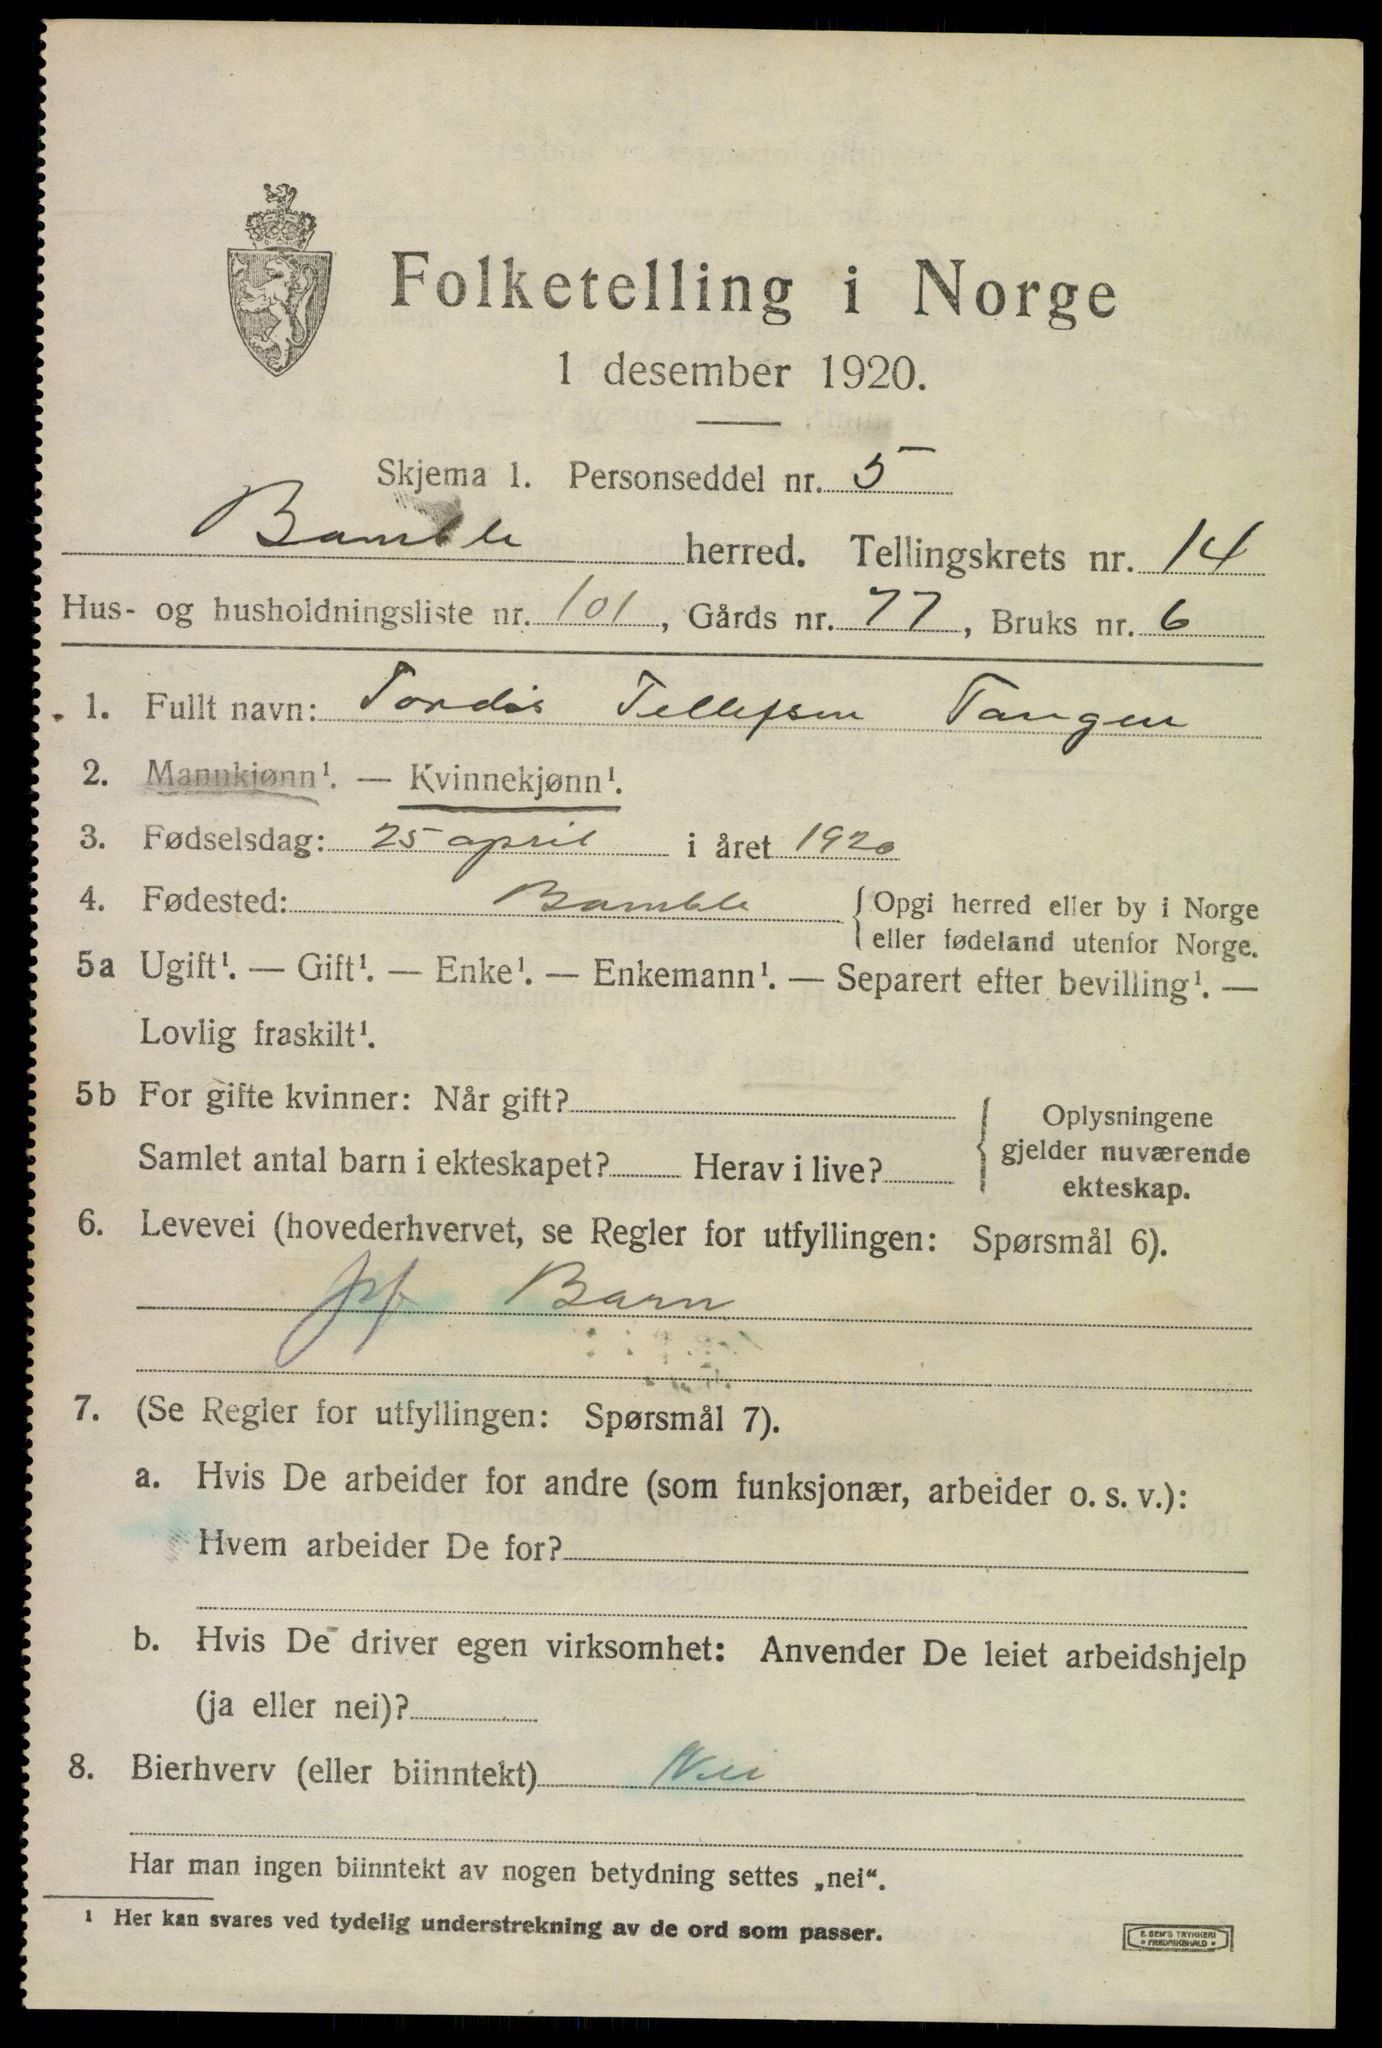 Folketelling i Norge
1 desember 1920.
Skjema 1. Personseddel nr. 5
Bamble herred. Tellingskrets nr. 14
Hus- og husholdningsliste nr. 101, Gårds nr. 77, Bruks nr. 6
1. Fullt navn: Tordis Tellefsen Tangen
2. Mannkjønn¹. — Kvinnekjønn¹.
3. Fødselsdag: 25 april i året 1920
4. Fødested: Bamble { Opgi herred eller by i Norge
eller fødeland utenfor Norge.
5a Ugift¹. — Gift¹. — Enke¹. — Enkemann¹. — Separert efter bevilling¹. —
Lovlig fraskilt¹.
5b For gifte kvinner: Når gift?
Samlet antal barn i ekteskapet? Herav i live?
{ Oplysningene
gjelder nuværende
ekteskap.
6. Levevei (hovederhvervet, se Regler for utfyllingen: Spørsmål 6).
Barn
7. (Se Regler for utfyllingen: Spørsmål 7).
a. Hvis De arbeider for andre (som funksjonær, arbeider o. s. v.):
Hvem arbeider De for?
b. Hvis De driver egen virksomhet: Anvender De leiet arbeidshjelp
(ja eller nei)?
8. Bierhverv (eller biinntekt) Nei
Har man ingen biinntekt av nogen betydning settes „nei“.
¹ Her kan svares ved tydelig understrekning av de ord som passer.
E. SEM'S TRYKKERI
• FREDRIKSHALD •